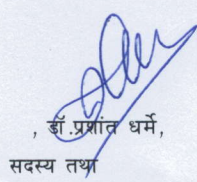 , डॉ.प्रशांत धर्मे,
सदस्य तथा